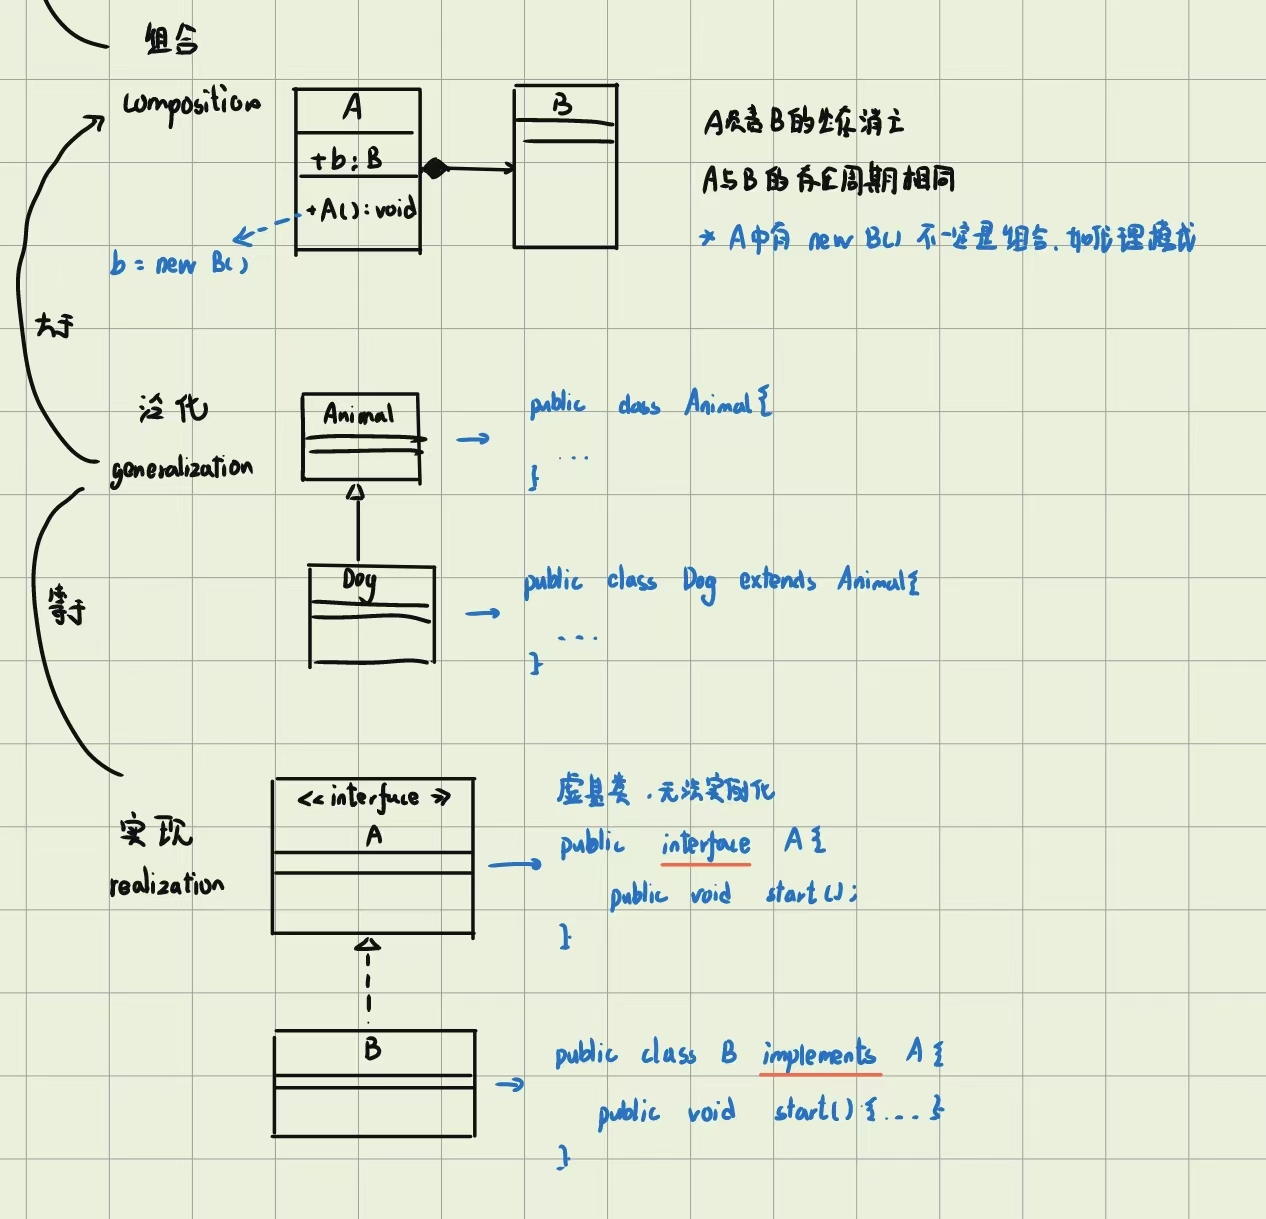 组合
composition
A
+b:B
+A():void
B
b = new B()
A负责B的生存消亡
A与B的存在周期相同
* A中有 new B() 不一定是组合.如代理模式
大于
泛化
generalization
Animal
public class Animal{
...
}
Dog
public class Dog extends Animal{
...
}
等于
实现
realization
<< interface >>
A
虚基类.无法实例化
public interface A{
public void start();
}
B
public class B implements A{
public void start(){....}
}